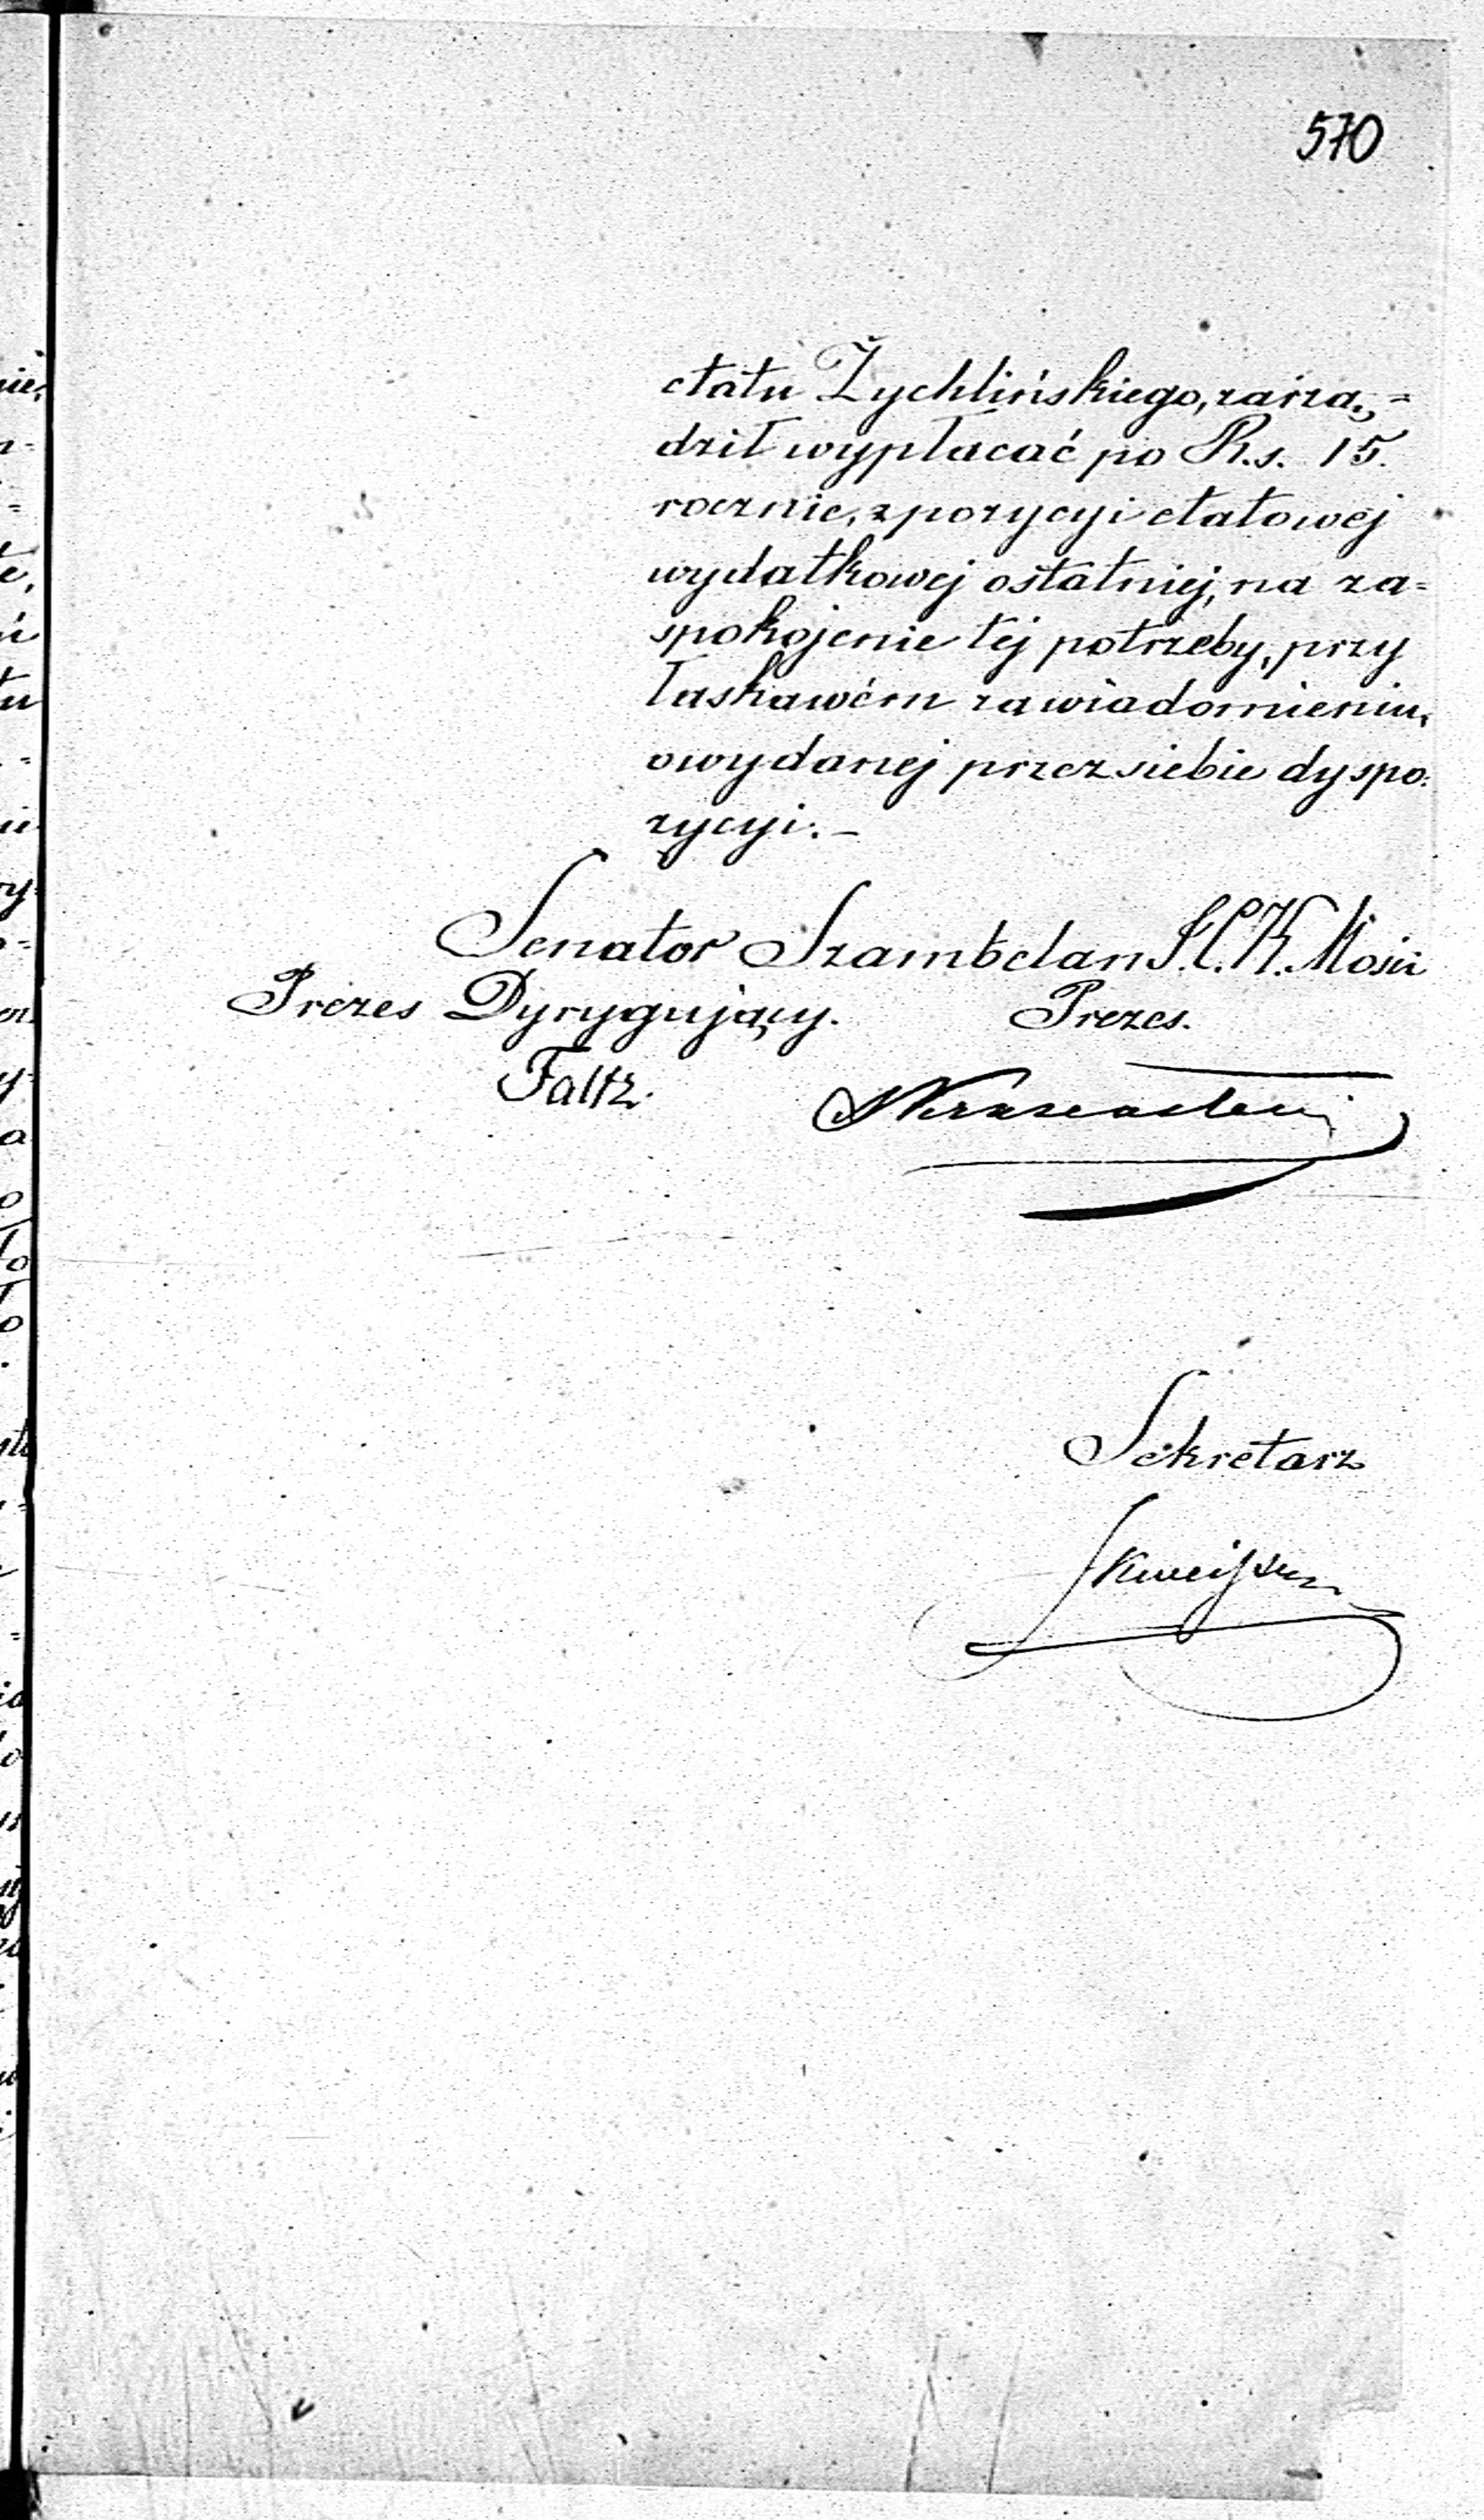 570
etatu Żychlińskiego, zarzą=
dził wypłacać po R.s. 15.
rocznie, z pozycyi etatowéj
wydatkowej ostatniéj, na za=
spokojenie téj potrzeby, przy
łaskawém zawiadomieniu,
o wydanéj przez siebie dyspo=
zycyi. –
Senator Szambelan J.C.K. Mości
Prezes Dyrygujący. Prezes.
Faltz.
Sekretarz